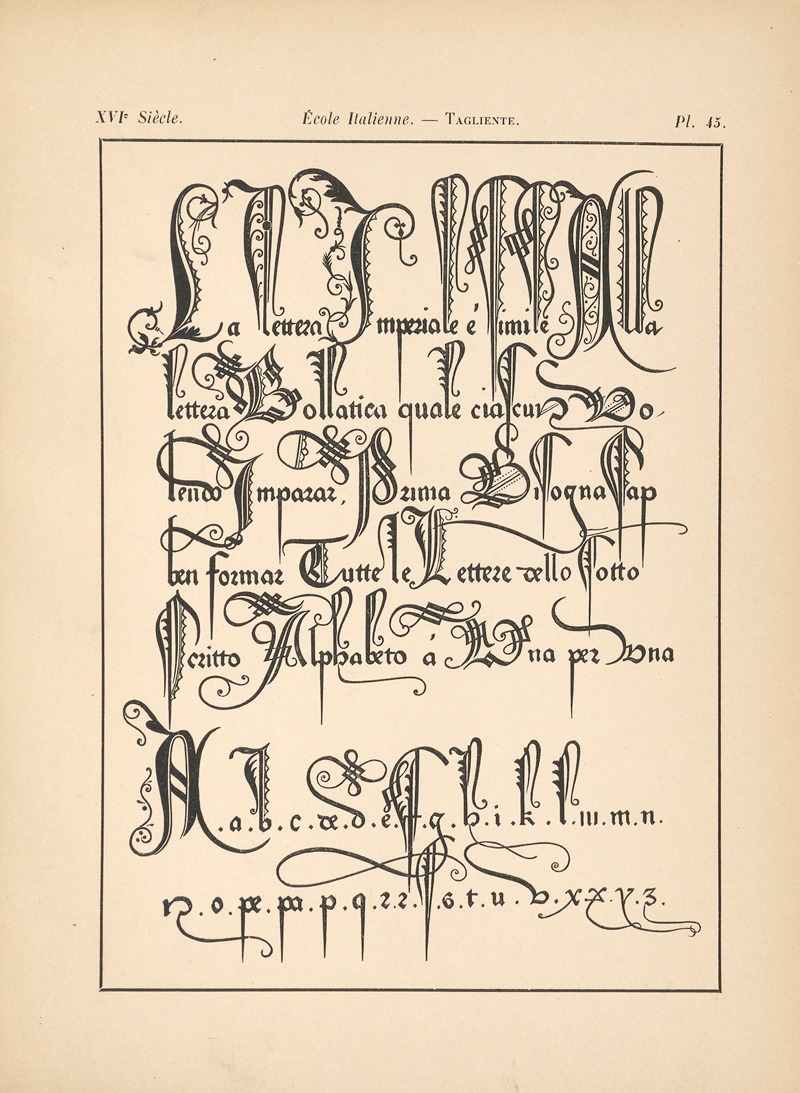 XVIᵉ Siècle. École Italienne. — TAGLIENTE. Pl. 45.
La lettera Imperiale é simile Alla
lettera Bollatica quale ciascuno Vo-
lendo Imparar, Prima Bisogna Sap
ben formar Tutte le Lettere dello Sotto
Scritto Alphabeto á Una per Vna
A.a.b.c.de.d.e.f.g.h.i.k.l.m.n.
n.o.pe.pa.p.q.2.2.s.6.t.u.v.x.x.y.3.